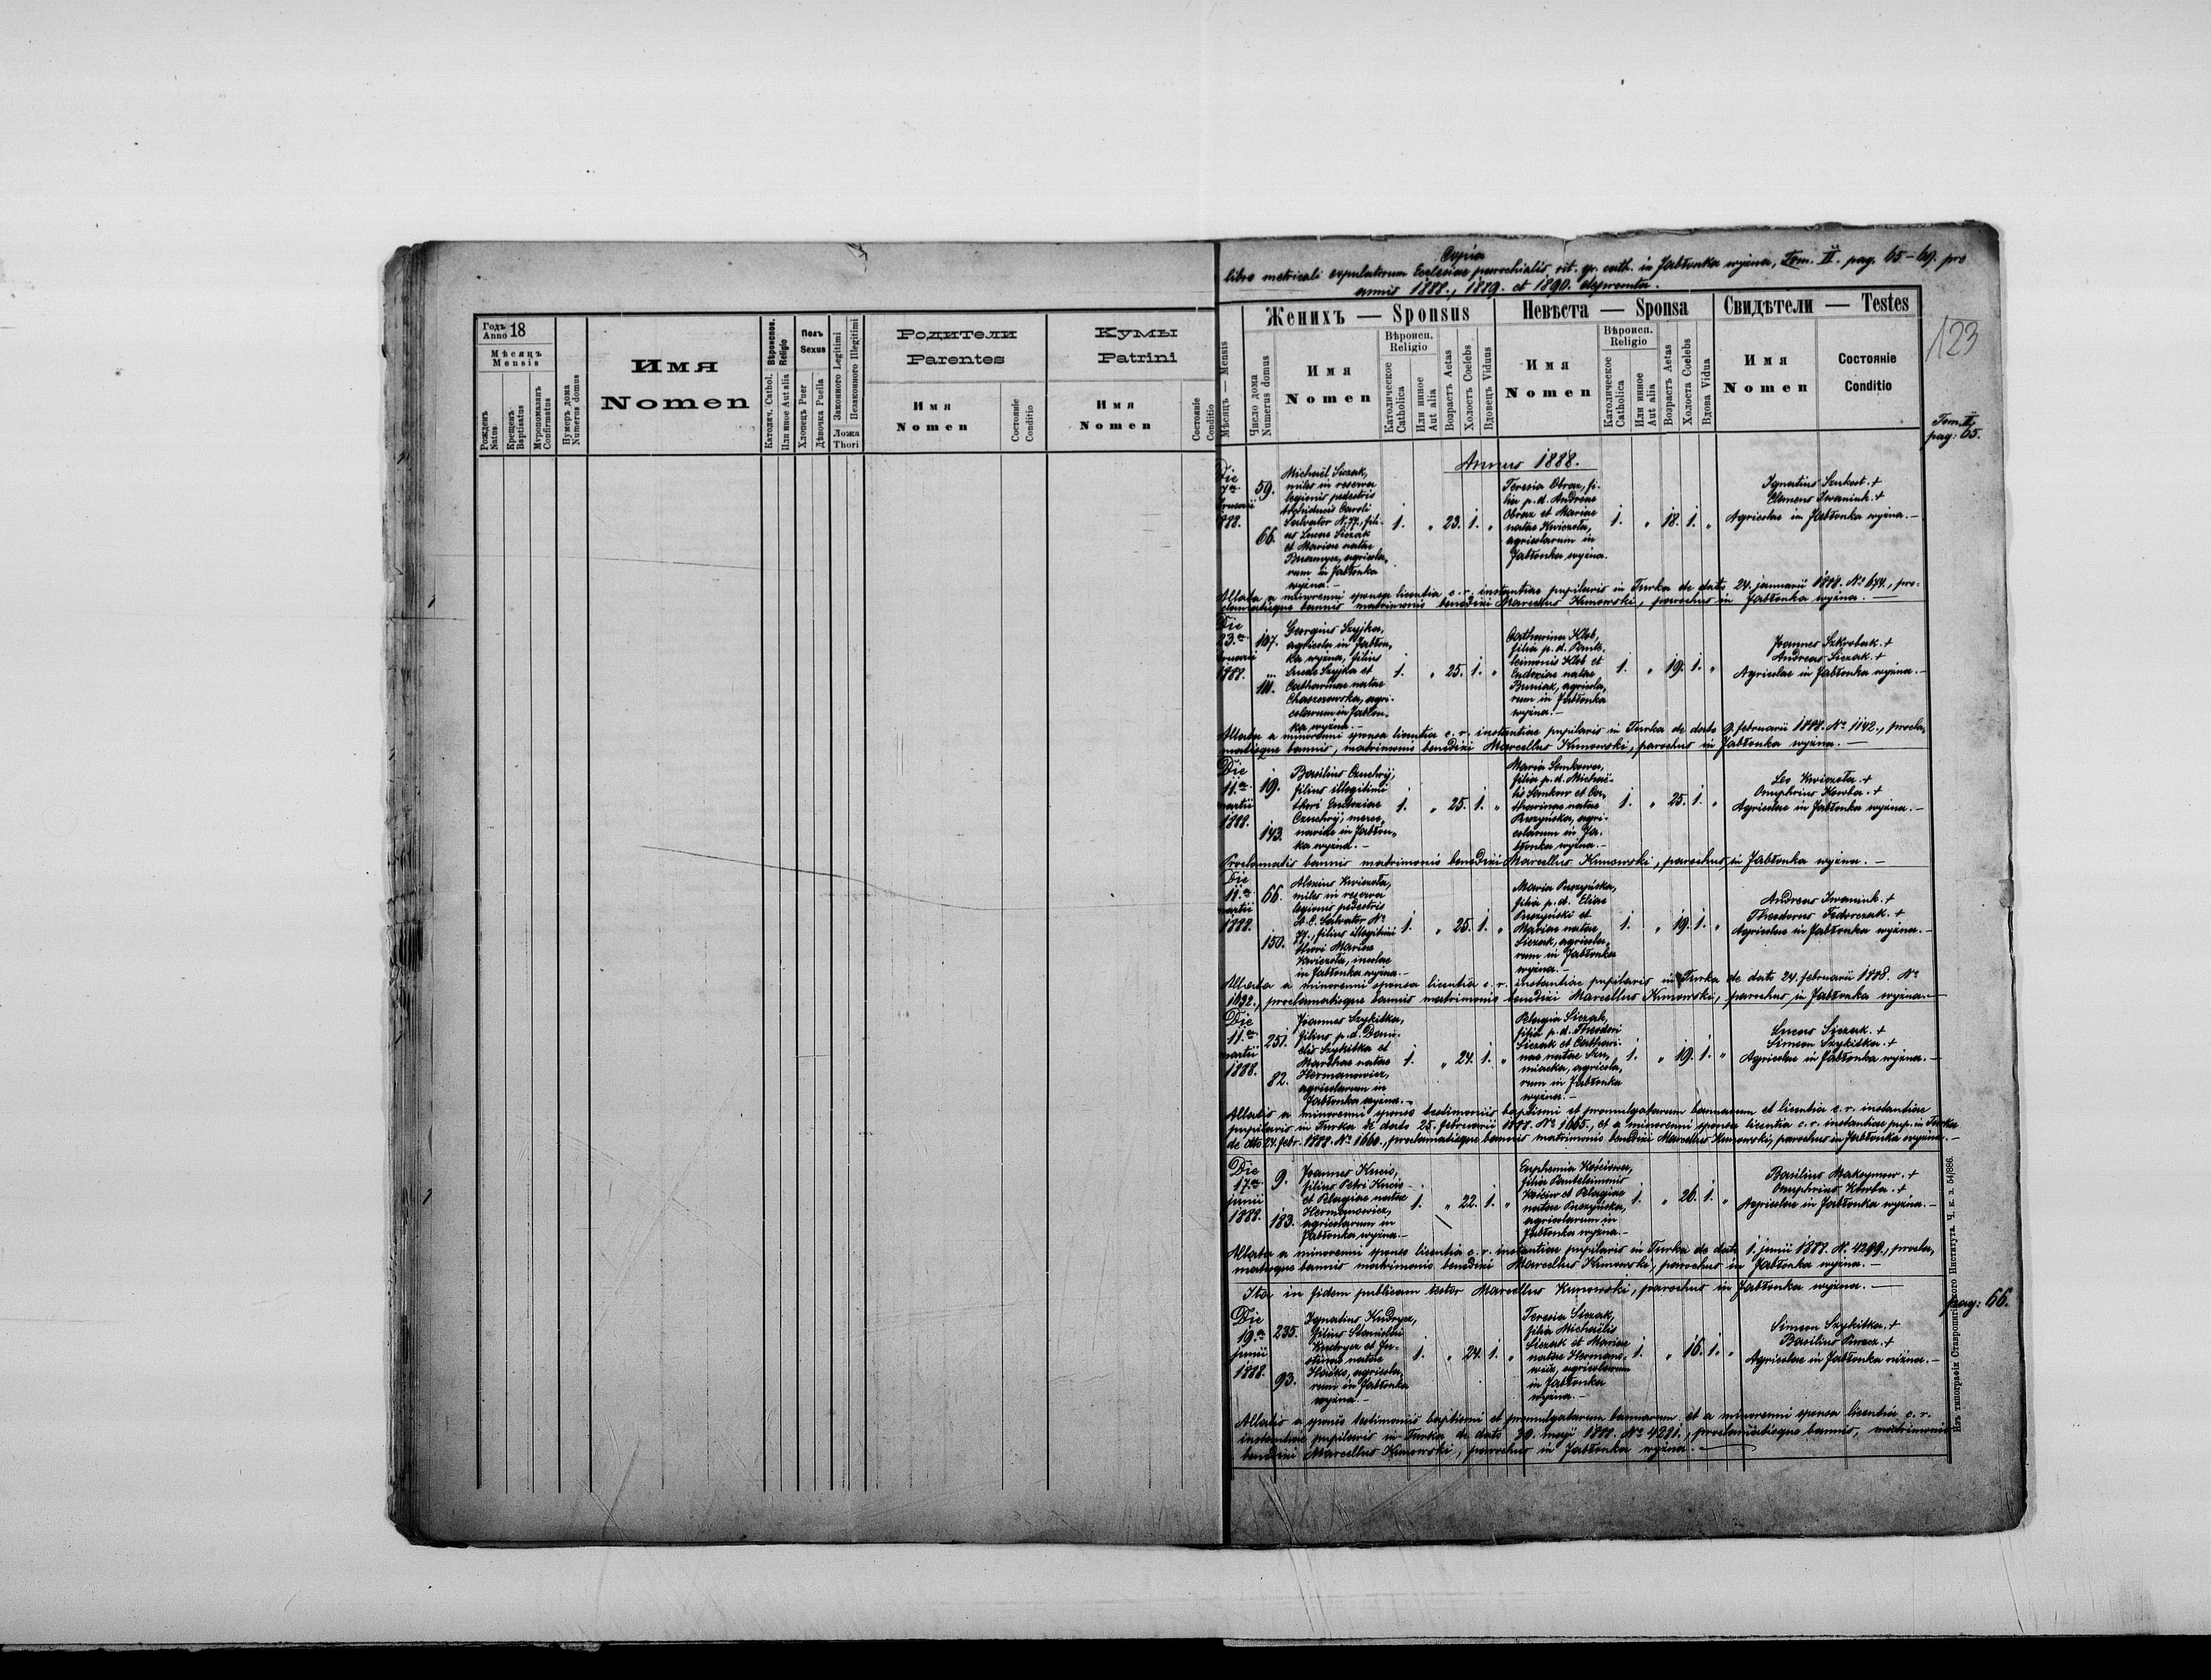 Годъ
Anno 18
Мѣсяцъ
Mensis
Рожденъ
Natus
Крещенъ
Baptisatus
Мѵропомазанъ
Confirmatus
Нумеръ дома
Numerus domus
Имя
Nomen
Вѣроиспов.
Religio
Католич. Cathol.
Или иное Aut alia
Полъ
Sexus
Хлопецъ Puer
Дѣвочка Puella
Законного Legitimi
Незаконного Illegitimi
Ложа
Thori
Родители
Parentes
Имя
Nomen
Состояніе
Conditio
Кумы
Patrini
Имя
Nomen
Состояніе
Conditio
Copia
libro metricali copulatorum Ecclesiae parochialis rit. gr. cath. in Jabłonka wyżna, Tom. II. pag. 65-69. pro
annis 1888., 1889. et 1890. depromta.
123
Мѣсяцъ — Mensis
Число дома
Numerus domus
Женихъ — Sponsus
Имя
Nomen
Вѣроисп.
Religio
Католическое
Catholica
Или инное
Aut alia
Возрастъ Aetas
Холостъ Coelebs
Вдовецъ Viduus
Невѣста — Sponsa
Имя
Nomen
Вѣроисп.
Religio
Католическое
Catholica
Или инное
Aut alia
Возрастъ Aetas
Холоста Coelebs
Вдова Vidua
Свидѣтели — Testes
Имя
Nomen
Состояніе
Conditio
Tom. II.
pag: 65.
Annus 1888.
Die
7ª
bruarii
888.
59.
66.
Michaël Siczak,
miles in reserva
legionis pedestris
Archiducis Caroli
Salvator N. 77., fili-
us Lucae Siczak
et Mariae natae
agricola,
rum in Jabłonka
wyżna.-
1. " 23. 1. "
Teresia Obraz, fi-
lia p. d. Andreae
Obraz et Mariae
natae Kwiczoła,
agricolarum in
Jabłonka wyżna.
1. " 18. 1. "
Ignatius +
Clemens Iwaniuk. +
Agricolae in Jabłonka wyżna.-
Allata a minorenni sponsa licentia c. r. instantiae pupilaris in Turka de dato 24. januarii 1888. Nº 674., pro-
clamatisque bannis matrimonio benedixi Marcellus Kunowski, parochus in Jabłonka wyżna.-
Die
23.ª
bruarii
1788.
107.
111.
Georgius Szyjka,
agricola in Jabłon,
ka wyżna, filius
Lucae Szyjka et
Catharinae natae
agri-
colarum in Jabłon-
ka wyżna.-
1. " 25. 1. "
Catharina Kleb,
filia p. d. Pante
leimonis Kleb et
Eudoxiae natae
Buniak, agricola,
rum in Jabłonka
wyżna.-
1. " 19. 1. "
Joannes Szkrobak. +
Andreas Siczak. +
Agricolae in Jabłonka wyżna.-
Allata a minorenni sponsa licentia c. r. instantiae pupilaris in Turka de dato 9. februarii 1888. Nº 1142., procla,
matisque bannis, matrimonio benedixi Marcellus Kunowski, parochus in Jabłonka wyżna.-
Die
11.ª
martii
1888.
19.
143.
Basilius Czuchrij,
filius illegitimi
thori Eudoxiae
Czuchrij, merce,
nariae in Jabłon,
ka wyżna.-
1. " 25. 1. "
Maria Senkowa,
filia p. d. Michaë-
lis Senkow et Ca,
tharinae natae
Puszyńska, agri-
colarum in Ja-
błonka wyżna.-
1. " 25. 1. "
Leo Kwiczoła. +
Onuphrius Howba. +
Agricolae in Jabłonka wyżna.-
Proclamatis bannis matrimonio benedixi Marcellus Kunowski, parochus in Jabłonka wyżna.-
Die
11.ª
martii
1888.
66.
150.
Alexius Kwiczoła,
miles in reserva
legionis pedestris
A. C. Salvator Nº
77., filius illegitimi
thori Mariae
Kwiczoła, incolae
in Jabłonka wyżna.-
1. " 25. 1. "
Maria Puszyńska,
filia p. d. Eliae
Puszyński et
Mariae natae
Siczak, agricola,
rum in Jabłonka
wyżna.-
1. " 19. 1. "
Andreas Iwaniuk. +
Theodorus Fedorczak. +
Agricolae in Jabłonka wyżna.-
Allata a minorenni sponsa licentia c. r. instantiae pupilaris in Turka de dato 24. februarii 1888. Nº
1692., proclamatisque bannis matrimonio benedixi Marcellus Kunowski, parochus in Jabłonka wyżna.-
Die
11.ª
martii
1888.
251.
82.
Joannes Szykitka,
filius p. d. Dani-
elis Szykitka et
Marthae natae
Hermanowicz,
agricolarum in
Jabłonka wyżna.-
1. " 24. 1. "
Pelagia Siczak,
filia p. d. Theodori
Siczak et Cathari-
nae natae Szu,
miacka, agricola,
rum in Jabłonka
wyżna.-
1. " 19. 1. "
Lucas Siczak. +
Simeon Szykitka. +
Agricolae in Jabłonka wyżna.-
Allatis a minorenni sponso testimoniis baptismi et promulgatorum bannorum et licentia c. r. instantiae
pupilaris in Turka de dato 25. februarii 1888. Nº 1665., et a minorenni sponsa licentia c. r. instantiae pup. in Turka
de dto 24. febr. 1888. Nº 1660., proclamatisque bannis matrimonio benedixi Marcellus Kunowski, parochus in Jabłonka wyżna.-
Die
17.ª
junii
1888.
9.
183.
Joannes Kucio,
filius Petri Kucio
et Pelagiae natae
Hermanowicz,
agricolarum in
Jabłonka wyżna.-
1. " 22. 1. "
Euphemia Kościowa,
filia Panteleimonis
Kościow et Pelagiae
natae Puszyńska,
agricolarum in
Jabłonka wyżna.-
1. " 26. 1. "
Basilius Maksymow. +
Onuphrius Howba. +
Agricolae in Jabłonka wyżna.-
Allata a minorenni sponso licentia c. r. instantiae pupilaris in Turka de dato 1. junii 1888. Nº 4299., procla,
matisque bannis matrimonio benedixi Marcellus Kunowski, parochus in Jabłonka wyżna.-
Ita in fidem publicam testor Marcellus Kunowski, parochus in Jabłonka wyżna.-
pag: 66.
Die
19.ª
junii
1888.
235.
93.
Ignatius Kudrycz,
filius Stanislai
Kudrycz et Ju-
stinae natae
agricola,
rum in Jabłonka
wyżna.-
1. " 24. 1. "
Teresia Siczak,
filia Michaëlis
Siczak et Mariae
natae Hermano-
wicz, agricolarum
in Jabłonka
wyżna.-
1. " 16. 1. "
Simeon Szykitka. +
Basilius +
Agricolae in Jabłonka niżna.-
Allatis a sponso testimoniis baptismi et promulgatorum bannorum et a minorenni sponsa licentia c. r.
instantiae pupilaris in Turka de dato 30. maji 1888. Nº 4281., proclamatisque bannis, matrimonio
benedixi Marcellus Kunowski, parochus in Jabłonka wyżna.-
Изъ типографіи Ставропигійского Института. Ч. к. з. 54/886.